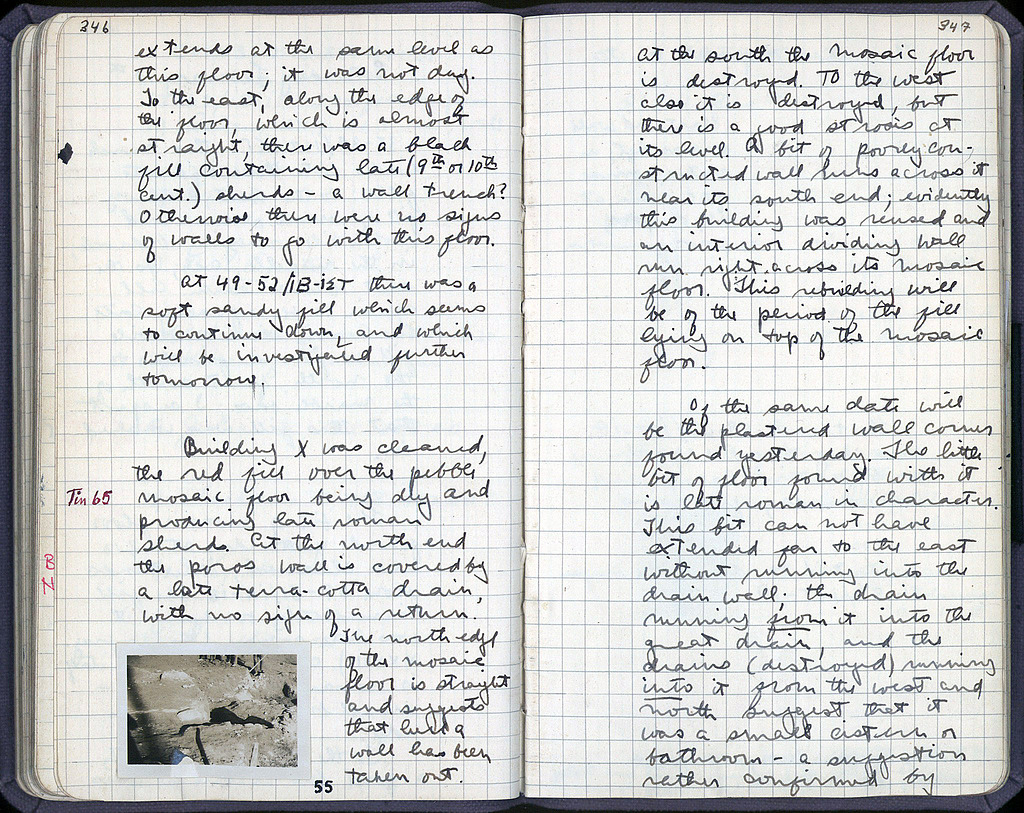 346
extends at the same level as
this floor; it was not dug.
To the east, along the edge of
the floor, which is almost
straight, there was a black
fill containing late (9th or 10th
cent.) sherds – a wall trench?
Otherwise there were no signs
of walls to go with this floor.
At 49-52/ there was a
soft sandy fill which seems
to continue down, and which
will be investigated further
tomorrow.
Building X was cleaned,
the red fill over the pebble
Tin 65
mosaic floor being dug and
producing late roman
sherds. At the north end
B
the poros wall is covered by
N
a late terra-cotta drain,
with no sign of a return.
The north edge
of the mosaic
floor is straight
and suggests
that here a
wall has been
taken out.
55
347
At the south the mosaic floor
is destroyed. To the west
also it is destroyed, but
there is a good strosis at
its level. A bit of poorly con-
structed wall runs across it
near its south end; evidently
this building was reused and
an interior dividing wall
run right across its mosaic
floor. This rebuilding will
be of the period of the fill
lying on top of the mosaic
floor.
Of the same date will
be the plastered wall corner
found yesterday. The little
bit of floor found with it
is late roman in character.
This bit can not have
extended far to the east
without running into the
drain wall; the drain
running from it into the
great drain, and the
drains (destroyed) running
into it from the west and
north suggest that it
was a small cistern or
bathroom – a suggestion
rather confirmed by